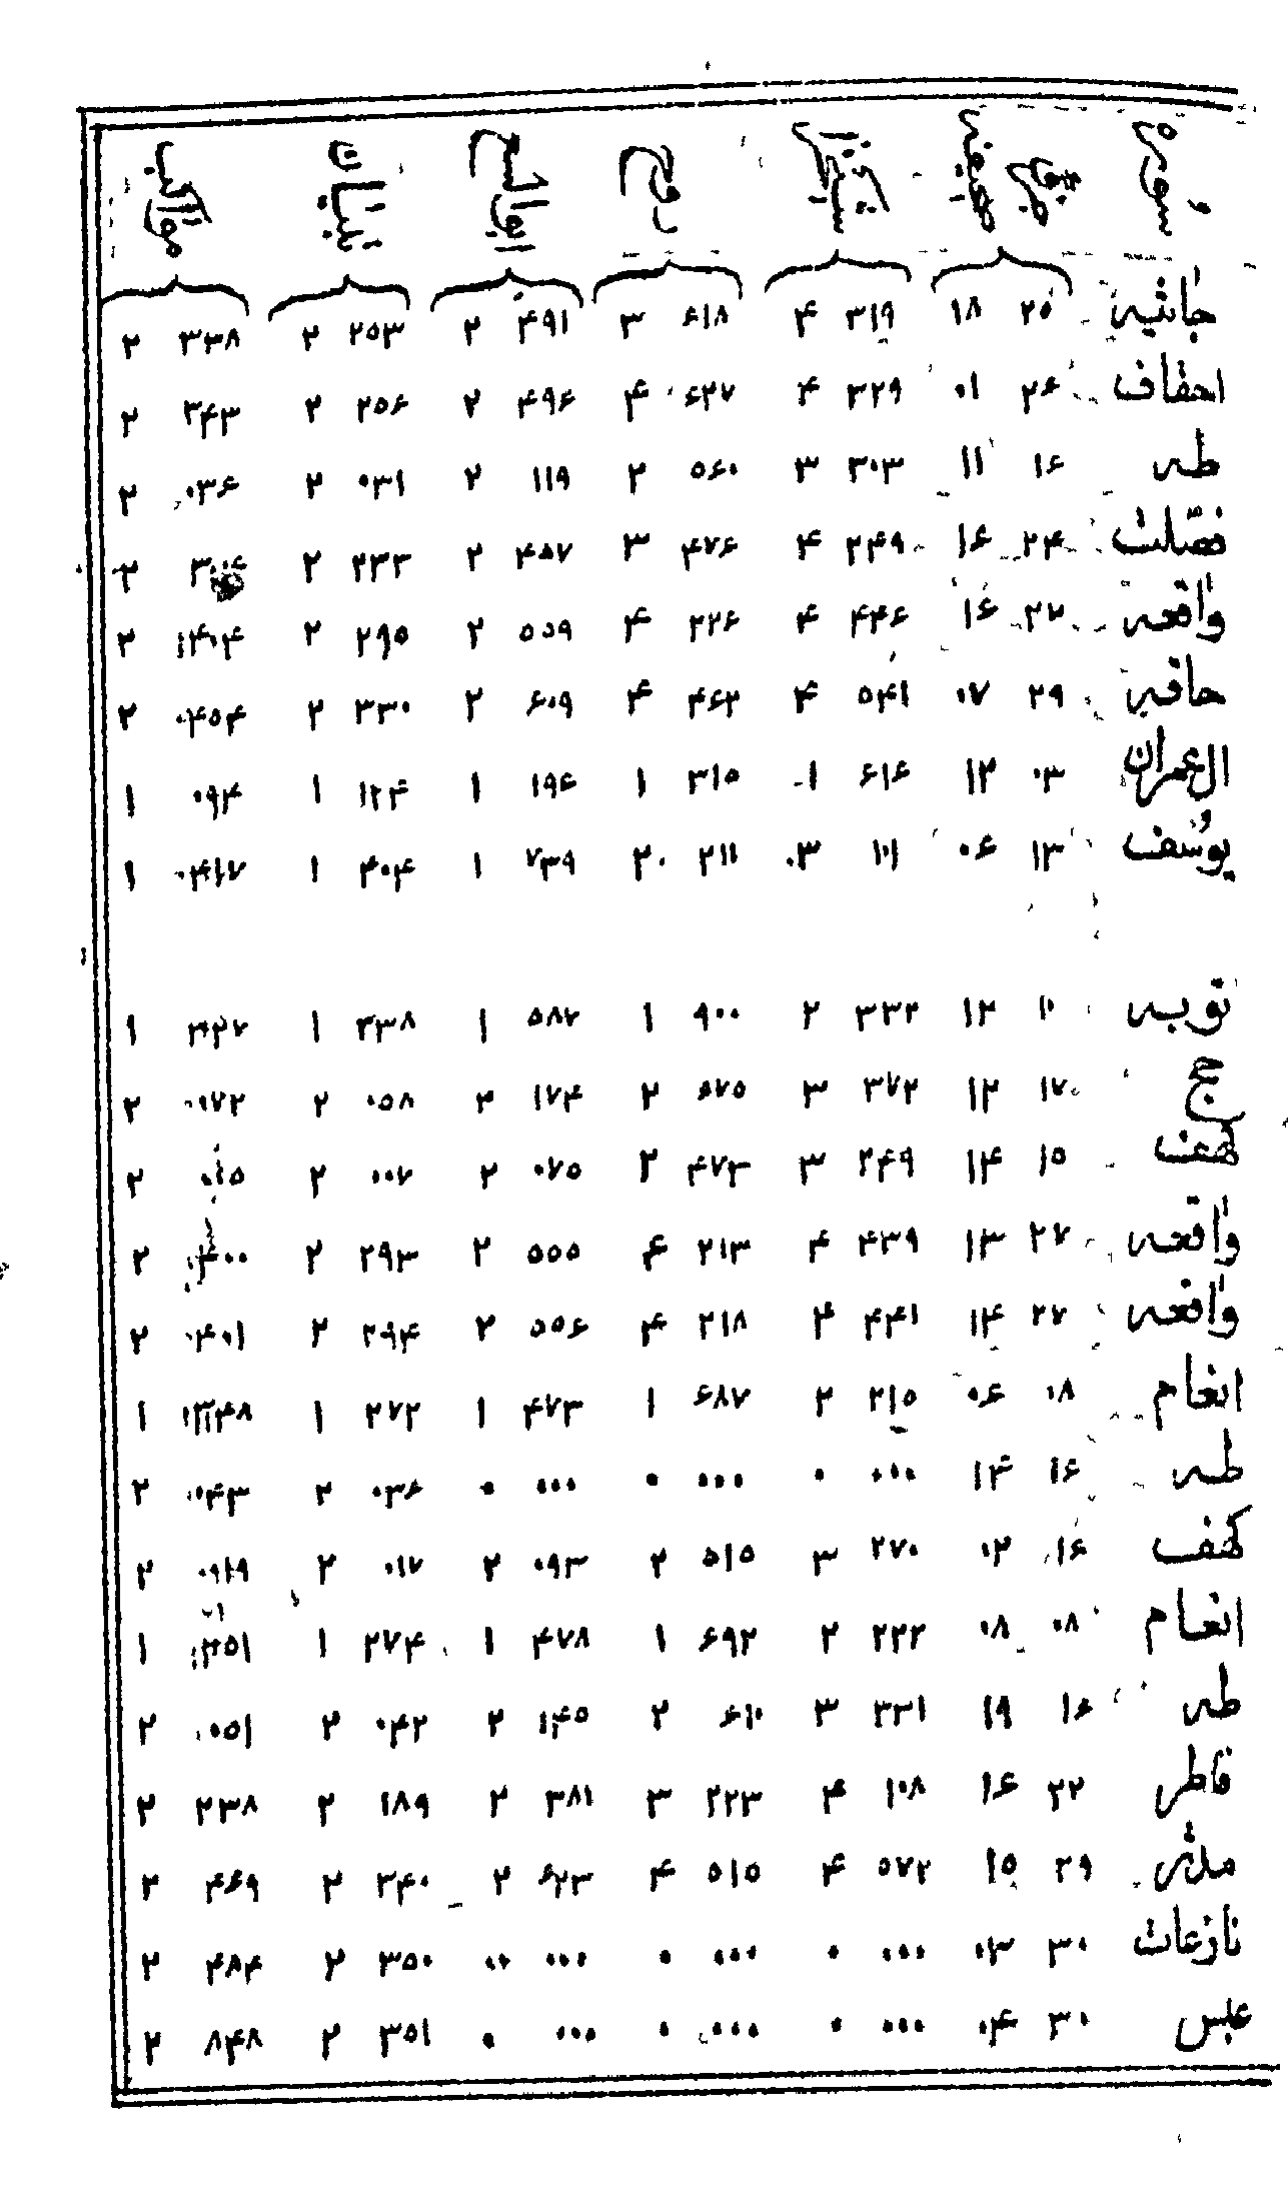 جاثیه ۲۵ ۱۸ ۳۱۹ ۴ ۶۱۸ ۳ ۴۹۱ ۲ ۲۵۳ ۲ ۳۳۸ ۲
احقاف ۲۶ ۰۱ ۳۲۹ ۴ ۶۲۷ ۴ ۴۹۶ ۲ ۲۵۶ ۲ ۳۴۳ ۲
طه ۱۶ ۱۱ ۳۰۳ ۳ ۵۶۰ ۲ ۱۱۹ ۲ ۰۳۱ ۲ ۰۳۶ ۲
فصّلت ۲۴ ۱۶ ۲۴۹ ۴ ۴۷۶ ۳ ۴۵۷ ۲ ۲۳۳ ۲ ۲
واقعه ۲۷ ۱۶ ۴۴۶ ۴ ۲۲۶ ۴ ۵۵۹ ۲ ۲۹۵ ۲ ۴۰۴ ۲
حاقه ۲۹ ۰۷ ۵۴۱ ۴ ۴۶۲ ۴ ۶۰۹ ۲ ۳۳۰ ۲ ۴۵۴ ۲
ال عمران ۰۳ ۱۲ ۶۱۶ ۱ ۳۱۵ ۱ ۱۹۶ ۱ ۱۲۴ ۱ ۰۹۴ ۱
یوسُف ۱۳ ۰۶ ۱۰۱ ۳ ۲۱۱ ۲ ۷۳۹ ۱ ۴۰۴ ۱ ۱
توبه ۱۰ ۱۲ ۳۳۲ ۲ ۹۰۰ ۱ ۵۸۷ ۱ ۳۳۸ ۱ ۱
حج ۱۷ ۱۲ ۳۷۲ ۳ ۶۷۵ ۲ ۱۷۴ ۲ ۰۵۸ ۲ ۰۷۲ ۲
کهف ۱۵ ۱۴ ۲۴۹ ۳ ۴۷۳ ۲ ۰۷۵ ۲ ۰۰۷ ۲ ۲
واقعه ۲۷ ۱۳ ۴۳۹ ۴ ۲۱۳ ۴ ۵۵۵ ۲ ۲۹۳ ۲ ۴۰۰ ۲
واقعه ۲۷ ۱۴ ۴۴۱ ۴ ۲۱۸ ۴ ۵۵۶ ۲ ۲۹۴ ۲ ۴۰۱ ۲
انعام ۰۸ ۰۶ ۲۱۵ ۲ ۶۸۷ ۱ ۴۷۳ ۱ ۲۷۲ ۱ ۱
طه ۱۶ ۱۴ ۰۰۰ ۰ ۰۰۰ ۰ ۰۰۰ ۰ ۰۳۶ ۲ ۰۴۳ ۲
کهف ۱۶ ۰۲ ۲۷۰ ۳ ۵۱۵ ۲ ۰۹۳ ۲ ۰۱۷ ۲ ۰۱۹ ۲
انعام ۰۸ ۰۸ ۲۲۲ ۲ ۶۹۲ ۱ ۴۷۸ ۱ ۲۷۴ ۱ ۲۵۱ ۱
طه ۱۶ ۱۹ ۳۳۱ ۳ ۶۱۰ ۲ ۱۴۵ ۲ ۰۴۲ ۲ ۰۵۱ ۲
فاطر ۲۲ ۱۶ ۱۰۸ ۴ ۲۲۳ ۳ ۳۸۱ ۲ ۱۸۹ ۲ ۲۳۸ ۲
مدثر ۲۹ ۱۵ ۵۷۲ ۴ ۵۱۵ ۴ ۶۲۳ ۲ ۳۴۰ ۲ ۴۶۹ ۲
نازعات ۳۰ ۰۳ ۰۰۰ ۰ ۰۰۰ ۰ ۰۰۰ ۰۰ ۳۵۰ ۲ ۴۸۴ ۲
عبس ۳۰ ۰۴ ۰۰۰ ۰ ۰۰۰ ۰ ۰۰۰ ۰ ۳۵۱ ۲ ۸۴۸ ۲